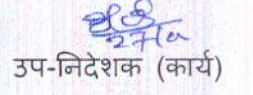 उप-निदेशक (कार्य)